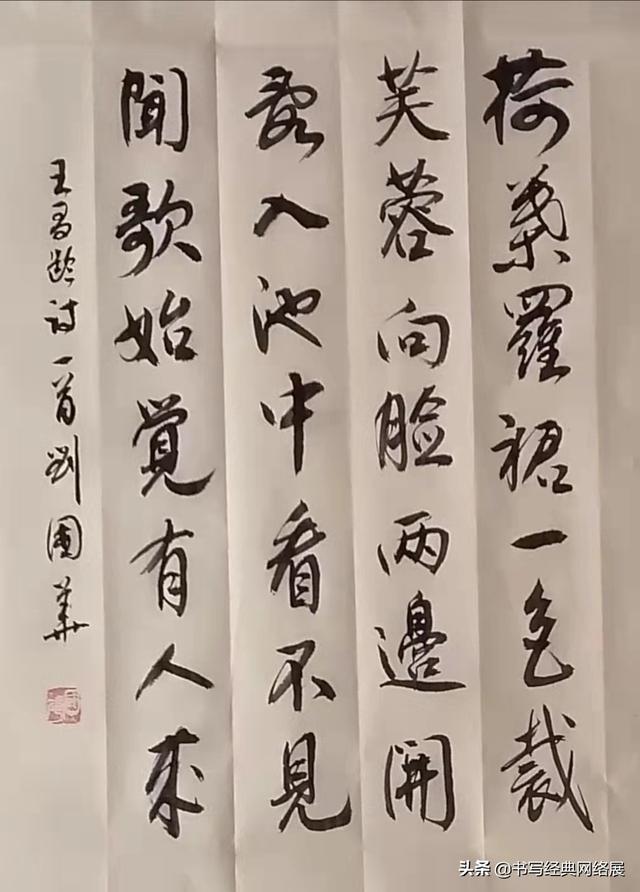 荷葉羅裙一色裁
芙蓉向脸两邊開
亂入池中看不見
聞歌始覺有人來
王昌齡詩一首劉國華
头条 @书写经典网络展